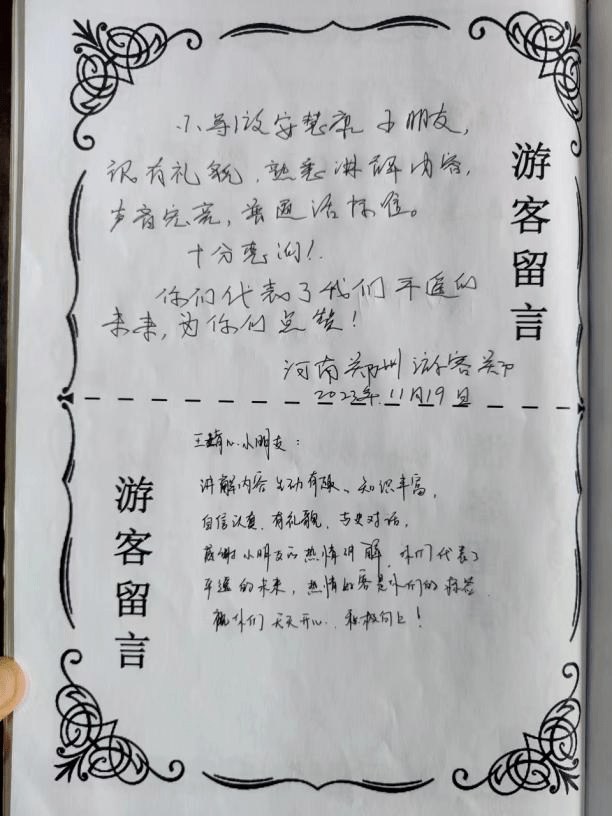 游客留言
小导游安慧康小朋友,
很有礼貌,熟悉讲解内容,
声音洪亮,普通话标准。
十分感谢!
你们代表了我们平遥的
未来,为你们点赞!
河南郑州游客郑
2023年.11月19日
游客留言
小朋友:
讲解内容生动有趣、知识丰富,
自信认真、有礼貌、与史对话,
感谢小朋友的热情讲解,你们代表了
平遥的未来,热情好客是你们的标签
祝你们天天开心、积极向上!